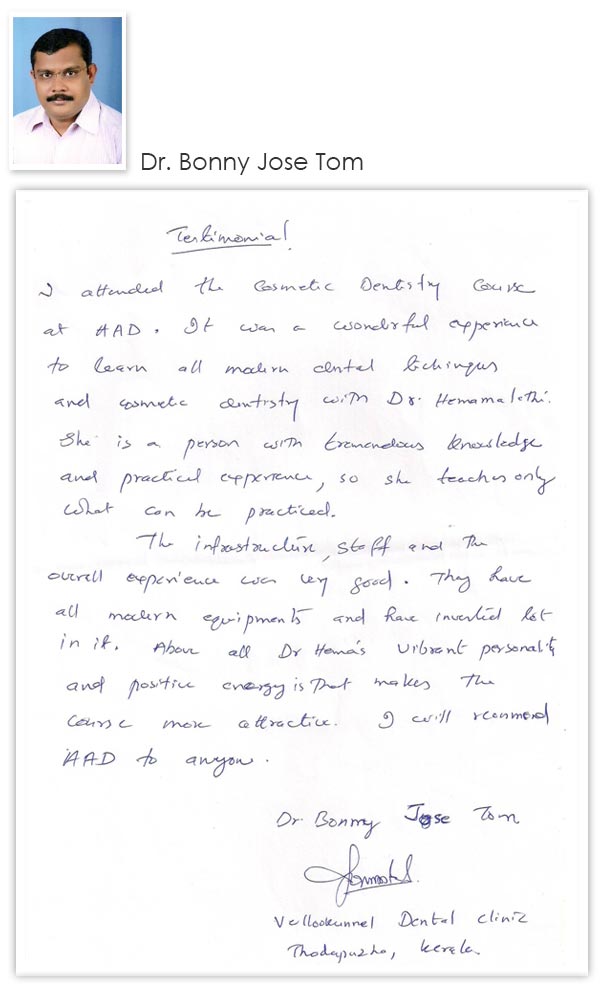 Dr. Bonny Jose Tom
Testimonial
I attended the Cosmetic Dentistry Course
at AAD. It was a wonderful experience
to learn all modern dental techinques
and cosmetic dentistry with Dr. Hemamalethi.
She is a person with tremendous knowledge
and practical experience, so she teaches only
what can be practiced.
The infrastructure, staff and the
overall experience was very good. They have
all modern equipments and have invested lot
in it. Above all Dr Hema's vibrant personality
and positive energy is that makes the
course more attractive. I will recommend
AAD to anyone.
Dr. Bonny Jose Tom
Vellookunnel Dental clinic
Thodupuzha, Kerala.